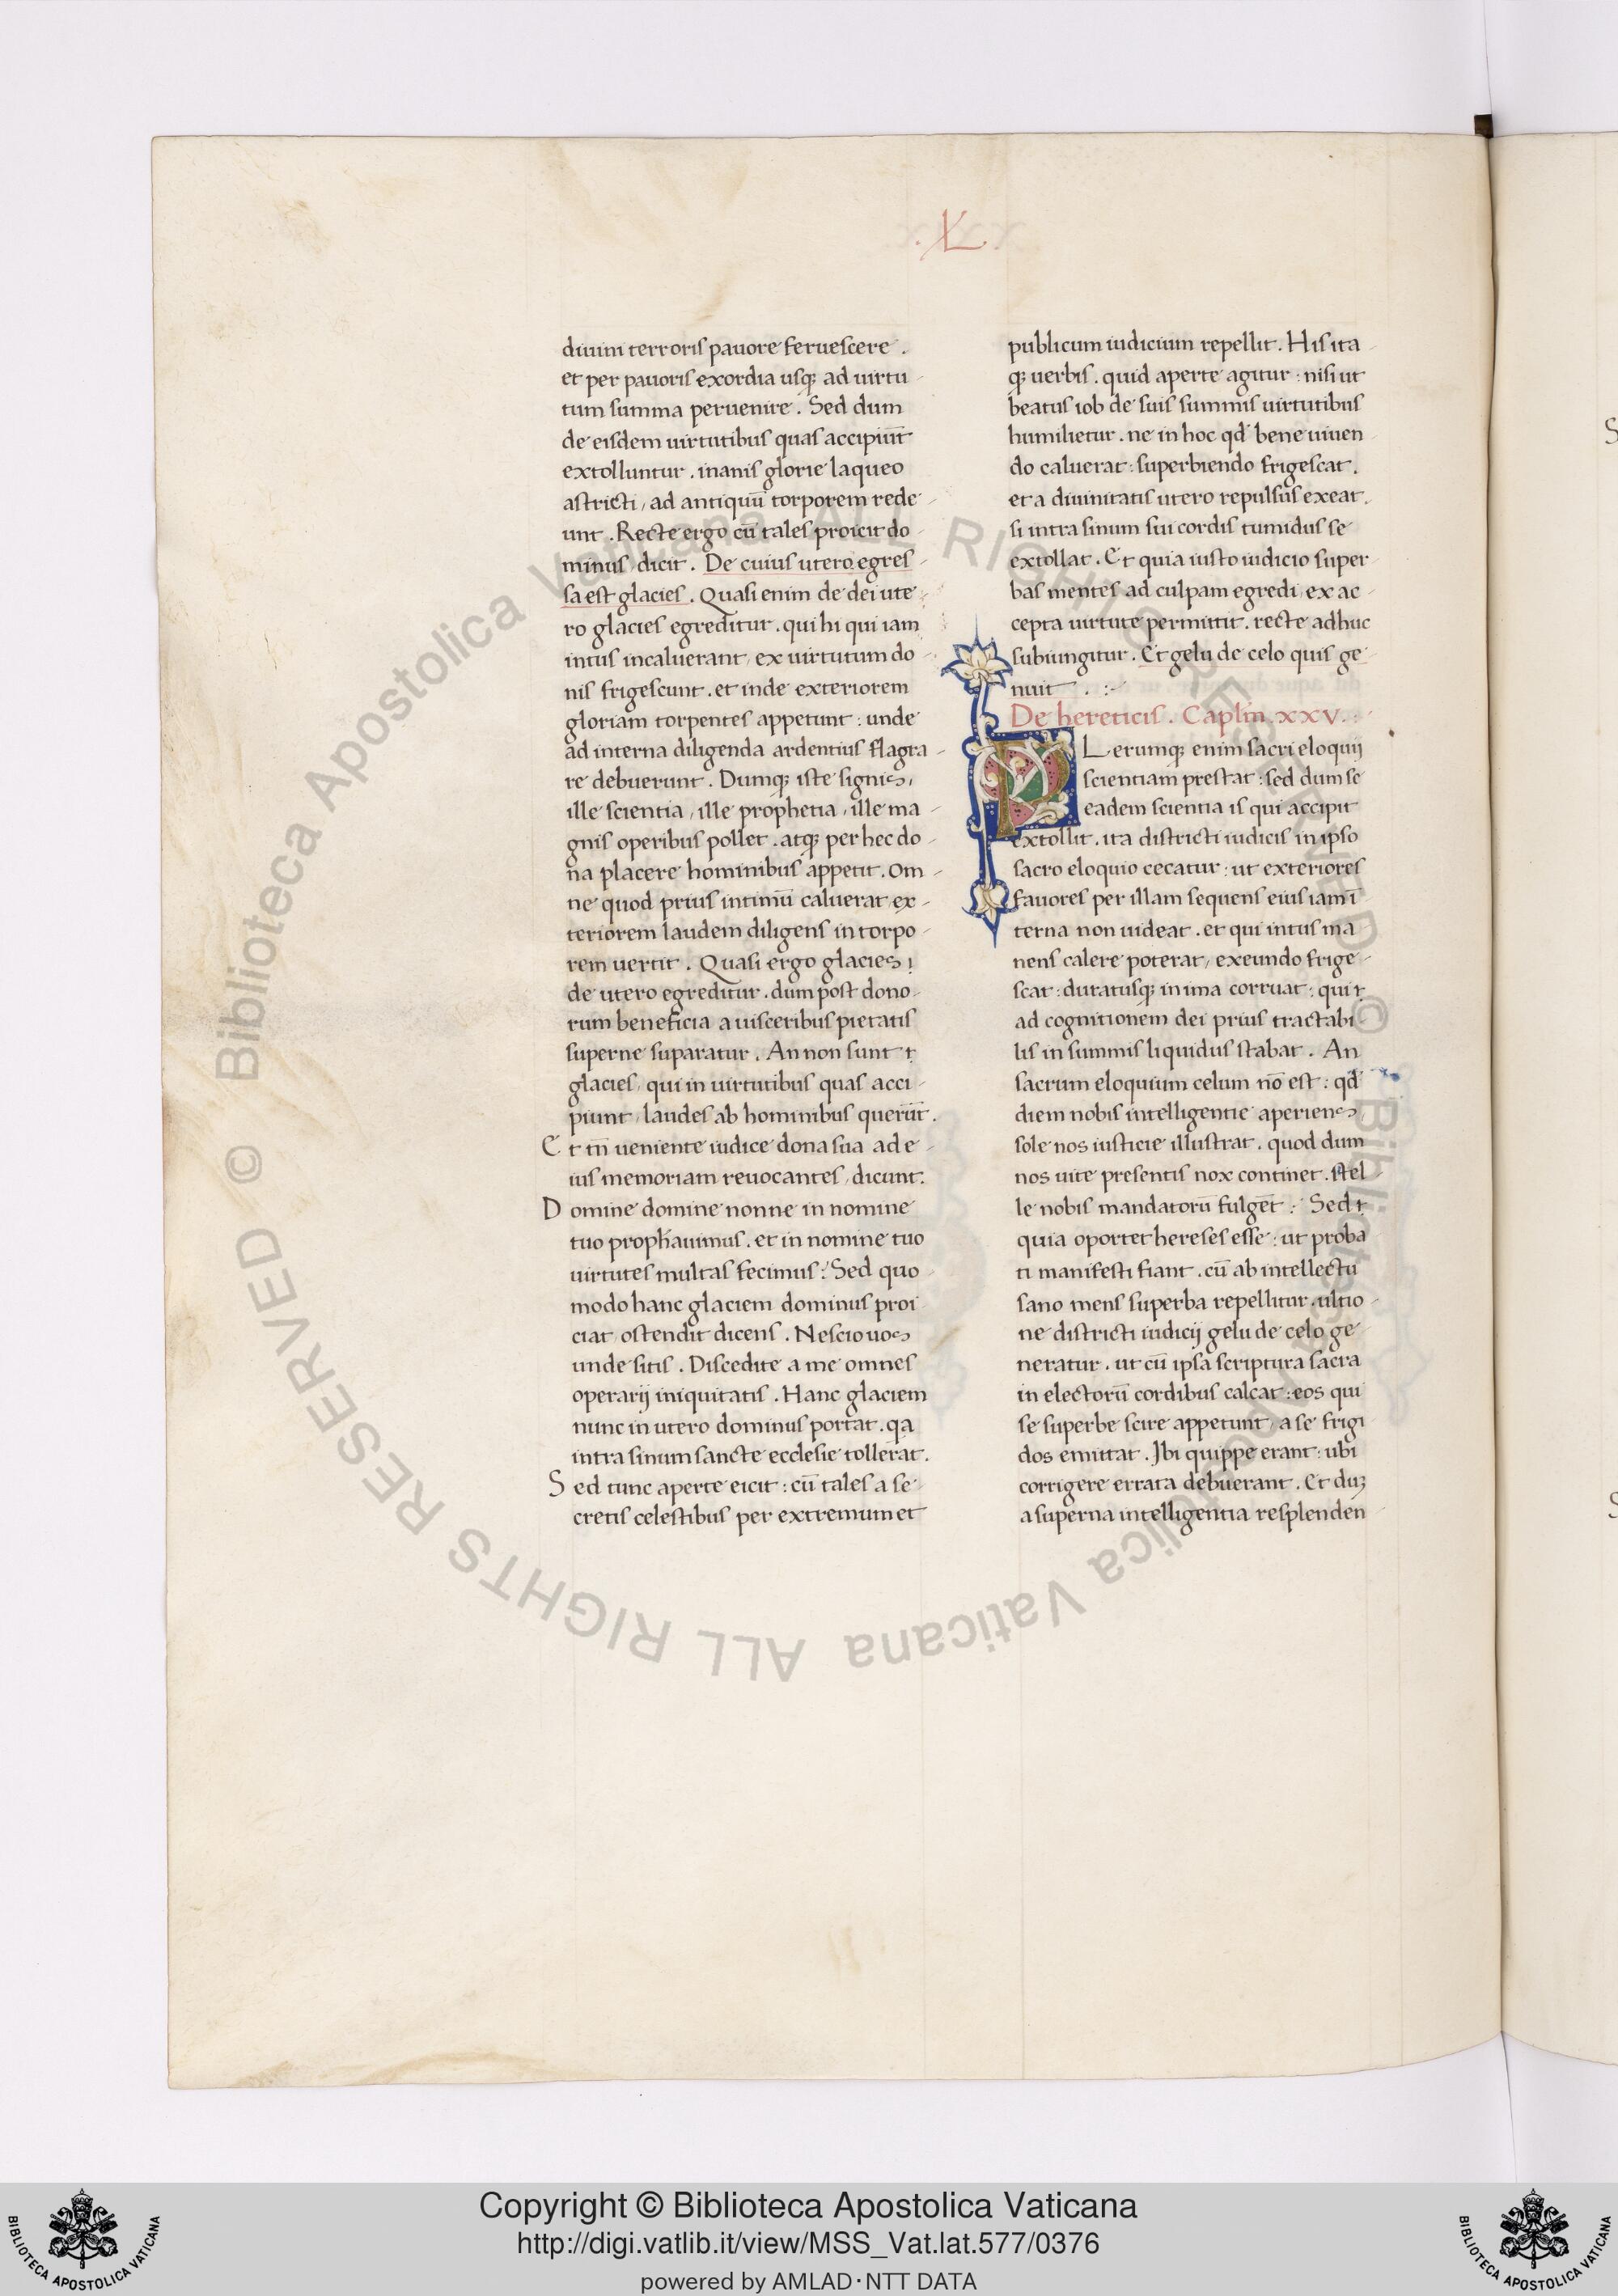 .XL.
diuini terroris pauore feruescere .
et per pauoris exordia usq; ad uirtu
tum summa peruenire . Sed dum
de eisdem uirtutibus quas accipiūt
extolluntur . inanis glorie laqueo
astricti, ad antiquū torporem rede
unt . Recte ergo cū tales proicit do
minus, dicit . De cuius utero egres
sa est glacies . Quasi enim de dei ute
ro glacies egreditur . qui hi qui iam
intus incaluerant, ex uirtutum do
nis frigescunt . et inde exteriorem
gloriam torpentes appetunt : unde
ad interna diligenda ardentius flagra
re debuerunt . Dumq; iste signis,
ille scientia, ille prophetia, ille ma
gnis operibus pollet . atq; per hec do
na placere hominibus appetit . om
ne quod prius intimū caluerat ex
teriorem laudem diligens in torpo
rem uertit . Quasi ergo glacies
de utero egreditur . dum post dono
rum beneficia a uisceribus pietatis
superne suparatur . An non sunt
glacies, qui in uirtutibus quas acci
piunt, laudes ab hominibus querūt .
Et tn̄ ueniente iudice dona sua ad e
ius memoriam reuocantes, dicunt :
Domine domine nonne in nomine
tuo prophauimus . et in nomine tuo
uirtutes multas fecimus : Sed quo
modo hanc glaciem dominus proi
ciat, ostendit dicens . Nescio uos
unde sitis . Discedite a me omnes
operarij iniquitatis . Hanc glaciem
nunc in utero dominus portat . qa
intra sinum sancte ecclesie tollerat .
Sed tunc aperte eicit : cū tales a se
cretis celestibus per extremum et
publicum iudicium repellit . His ita
q; uerbis . quid aperte agitur : nisi ut
beatus iob de suis summis uirtutibus
humilietur . ne in hoc qd' bene uiuen
do caluerat : superbiendo frigescat .
et a diuinitatis utero repulsus exeat .
si intra sinum sui cordis tumidus se
extollat . Et quia iusto iudicio super
bas mentes ad culpam egredi, ex ac
cepta uirtute permittit . recte adhuc
subiungitur . Et gelu de celo quis ge
nuit . :-
De hereticis . Caplm̄ . xxv .
PLerumq; enim sacri eloquij
scientiam prestat : sed dum se
eadem scientia is qui accipit
extollit . ita districti iudicis in ipso
sacro eloquio cecatur : ut exteriores
fauores per illam sequens eius iam ī
terna non uideat . et qui intus ma
nens calere poterat, exeundo frige
scat : duratusq; in ima corruat : qui
ad cognitionem dei prius tractabi
lis in summis liquidus stabat . An
sacrum eloquium celum nō est : qd'
diem nobis intelligentie aperiens,
sole nos iusticie illustrat . quod dum
nos uite presentis nox continet . stel
le nobis mandatorū fulgēt : Sed
quia oportet hereses esse : ut proba
ti manifesti fiant . cū ab intellectu
sano mens superba repellitur . ultio
ne districti iudicij gelu de celo ge
neratur . ut cū ipsa scriptura sacra
in electorū cordibus calcat : eos qui
se superbe scire appetunt, a se frigi
dos emittat . Ibi quippe erant : ubi
corrigere errata debuerant . Et duȝ
a superna intelligentia resplenden
© Biblioteca Apostolica Vaticana ALL RIGHTS RESERVED © Biblioteca Apostolica Vaticana ALL RIGHTS RESERVED
Copyright © Biblioteca Apostolica Vaticana
http://digi.vatlib.it/view/MSS_Vat.lat.577/0376
powered by AMLAD·NTT DATA
BIBLIOTECA APOSTOLICA VATICANA
BIBLIOTECA APOSTOLICA VATICANA